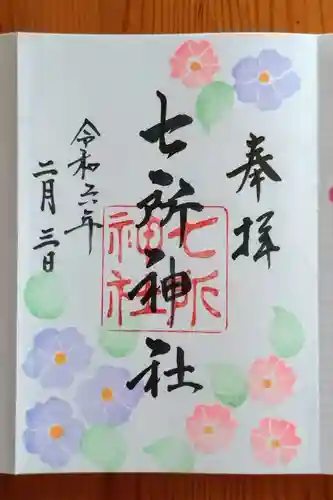 奉拝
七所神社
七所神社
令和六年
二月三日